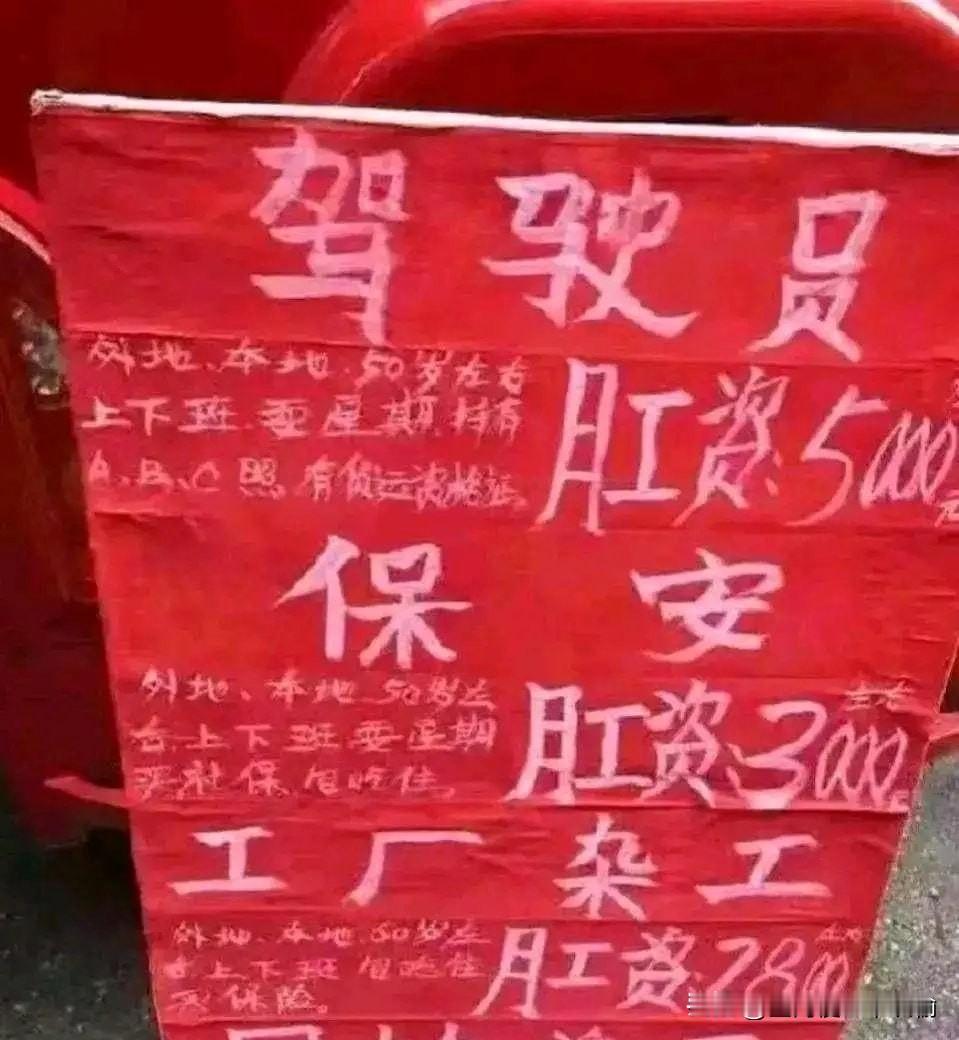 驾驶员
外地、本地、50岁左右
上下班.要星期.持有
A、B、C照.有货运资格证.
肛资:5000元
保安
外地、本地50岁左
右.上下班要星期
买社保包吃住.
肛资:3000元
左右
工厂杂工
外地、本地.50岁左
右上下班包吃住
买保险。
肛资:2800
左右